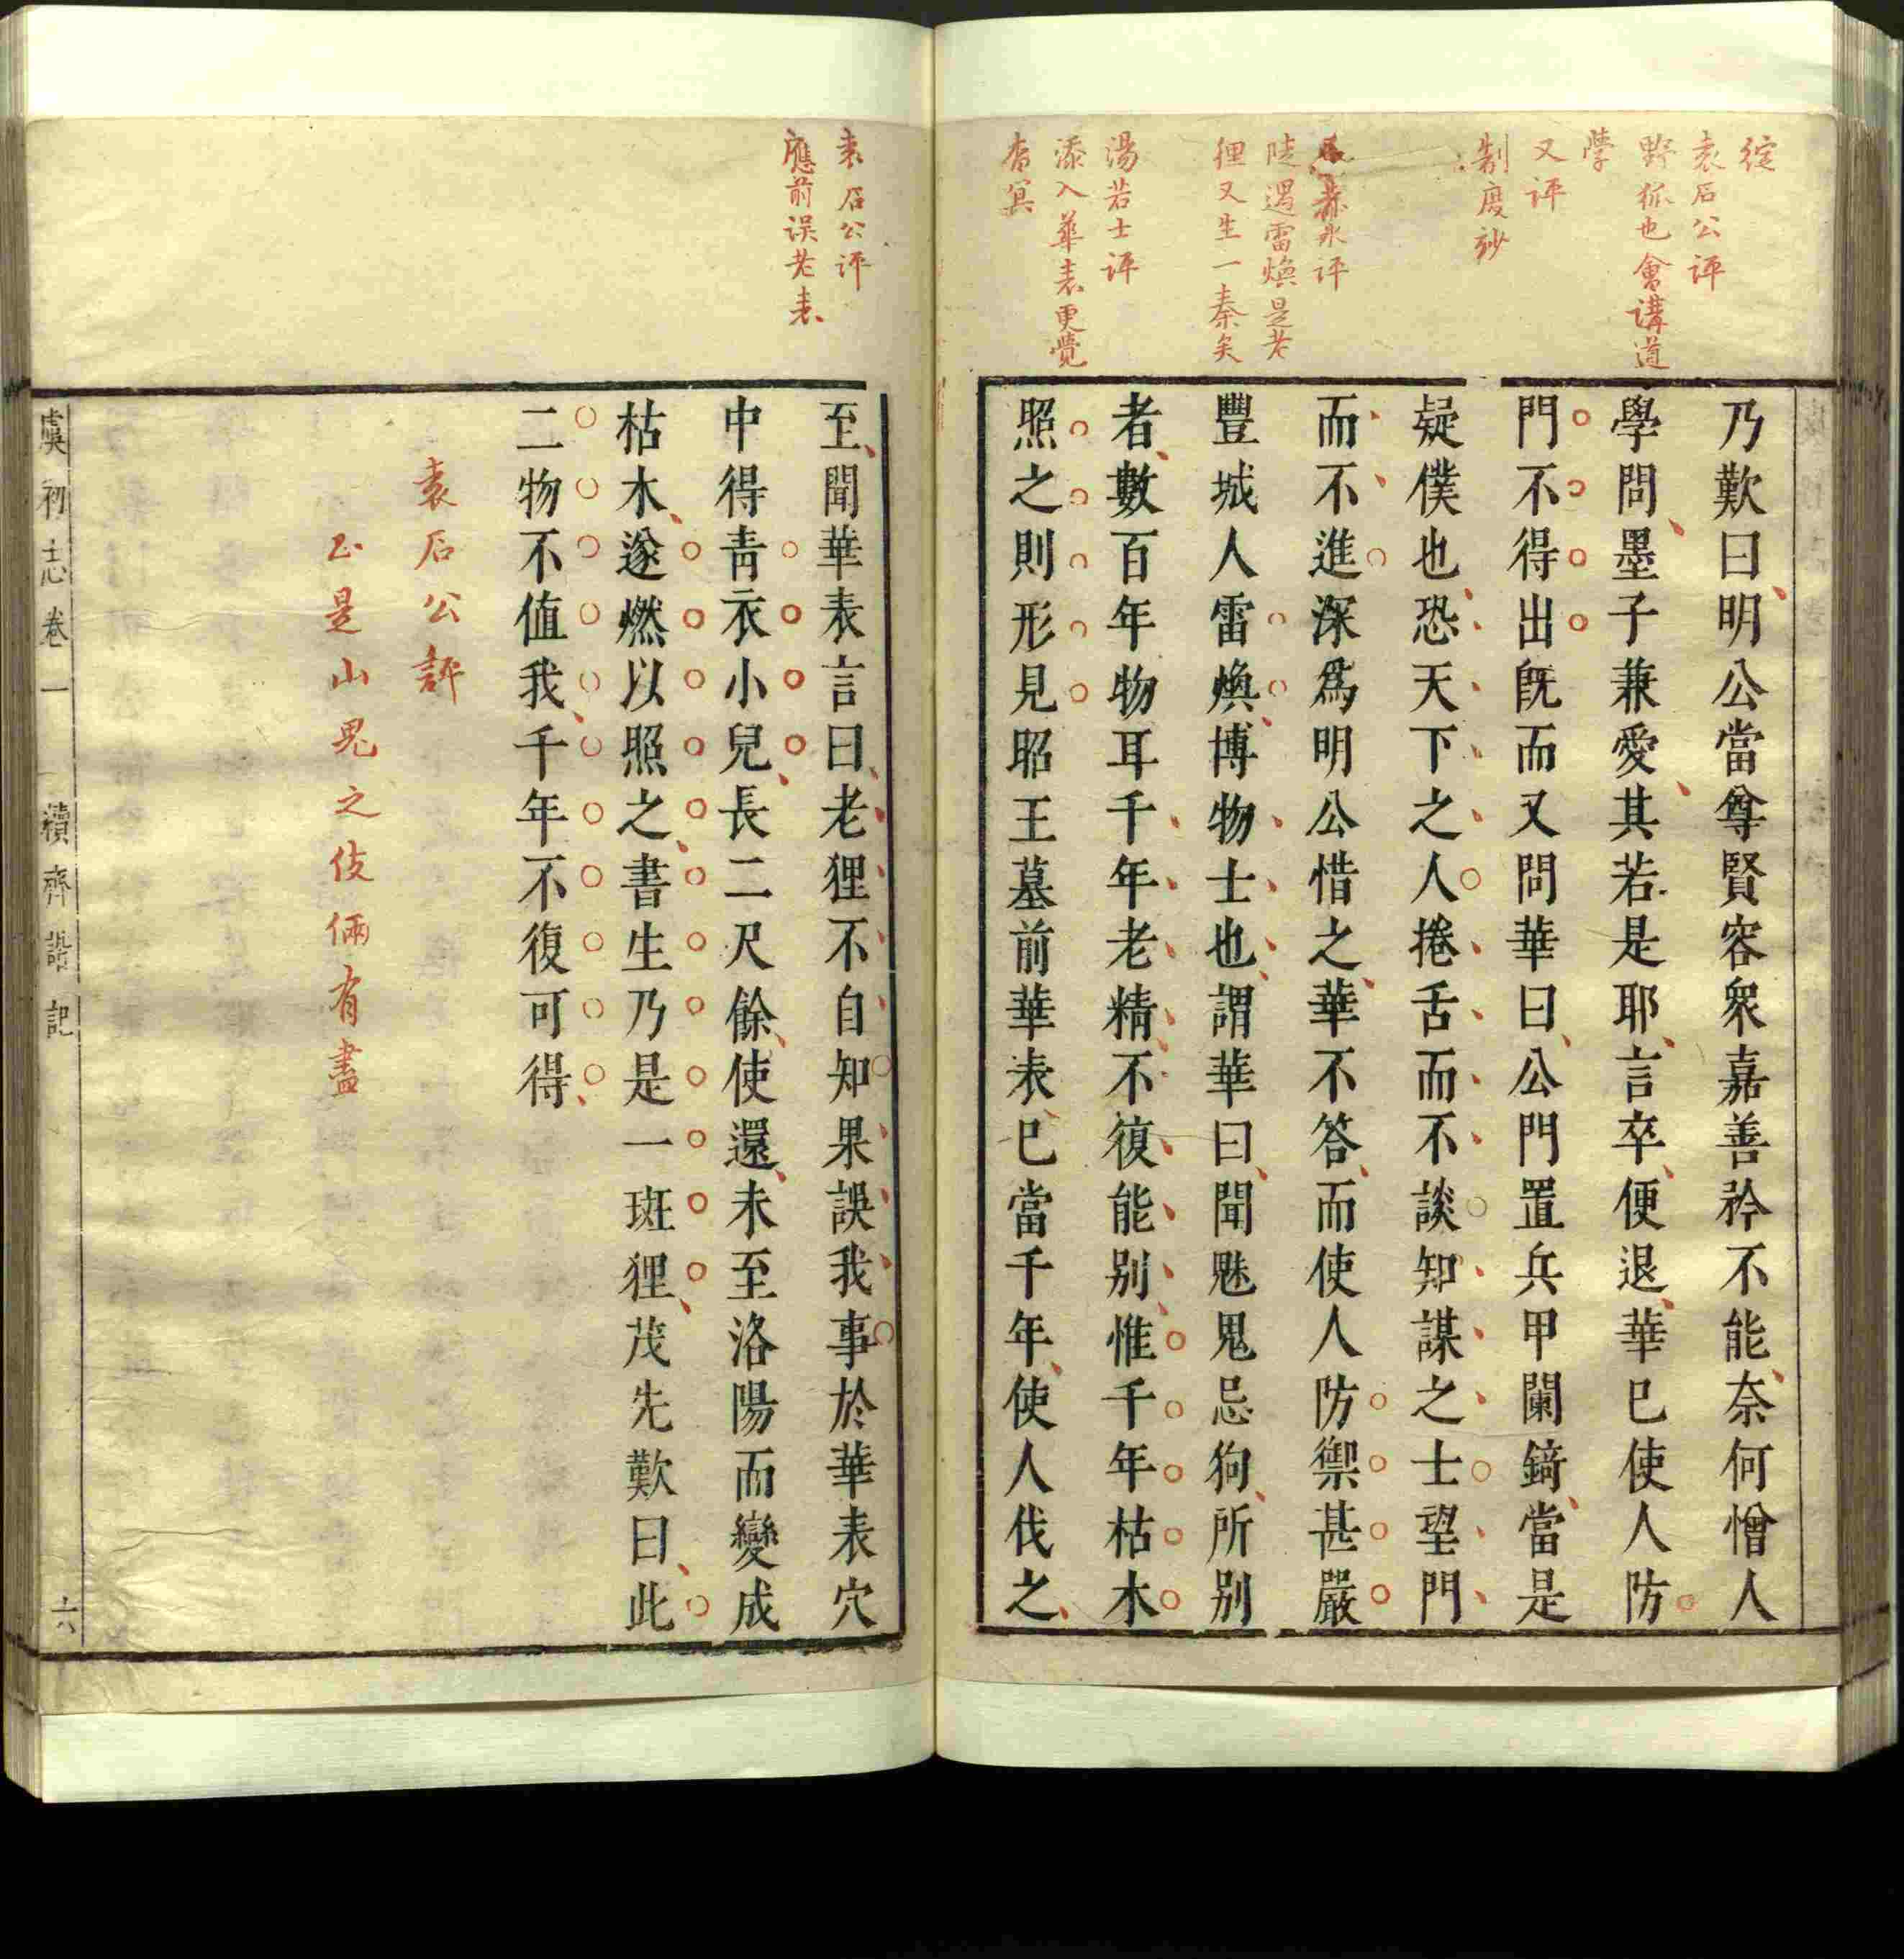 綻
袁石公評
野狐也會講道
學
又評
制度玅
評
陡遇雷煥是老
狸又生一秦矣
湯若士評
添入華表更覺
杳冥
乃歎曰明公當尊賢容衆嘉善矜不能奈何憎人
學問墨子兼愛其若是耶言卒便退華巳使人防
門不得出旣而又問華曰公門置兵甲闌錡當是
疑僕也恐天下之人捲舌而不談知謀之士望門
而不進深爲明公惜之華不答而使人防禦甚嚴
豐城人雷煥博物士也謂華曰聞魅鬼忌狗所別
者數百年物耳千年老精不復能別惟千年枯木
照之則形見昭王墓前華表巳當千年使人伐之
袁石公評
應前誤老表
至聞華表言曰老狸不自知果誤我事於華表穴
中得青衣小兒長二尺餘使還未至洛陽而變成
枯木遂燃以照之書生乃是一斑狸茂先歎曰此
二物不值我千年不復可得
袁石公評
正是山鬼之伎倆有盡
虞初志卷一 續齊諧記 六